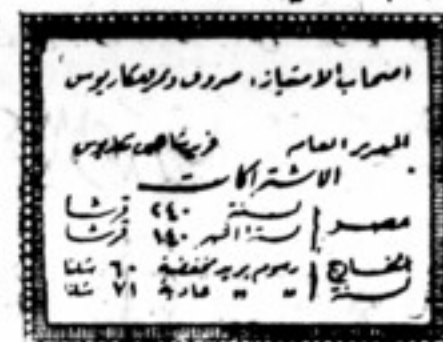 اصحاب الامتياز: صروف ونمر ومكاريوس
المدير العام
الاشتراكات
مصر لسنة ٢٤٠ قرشا
ستة اشهر ١٤٠ قرشا
للخارج رسوم بريد مخفضة ٦٠ شلنا
لسنة " " عادية ٧١ شلنا